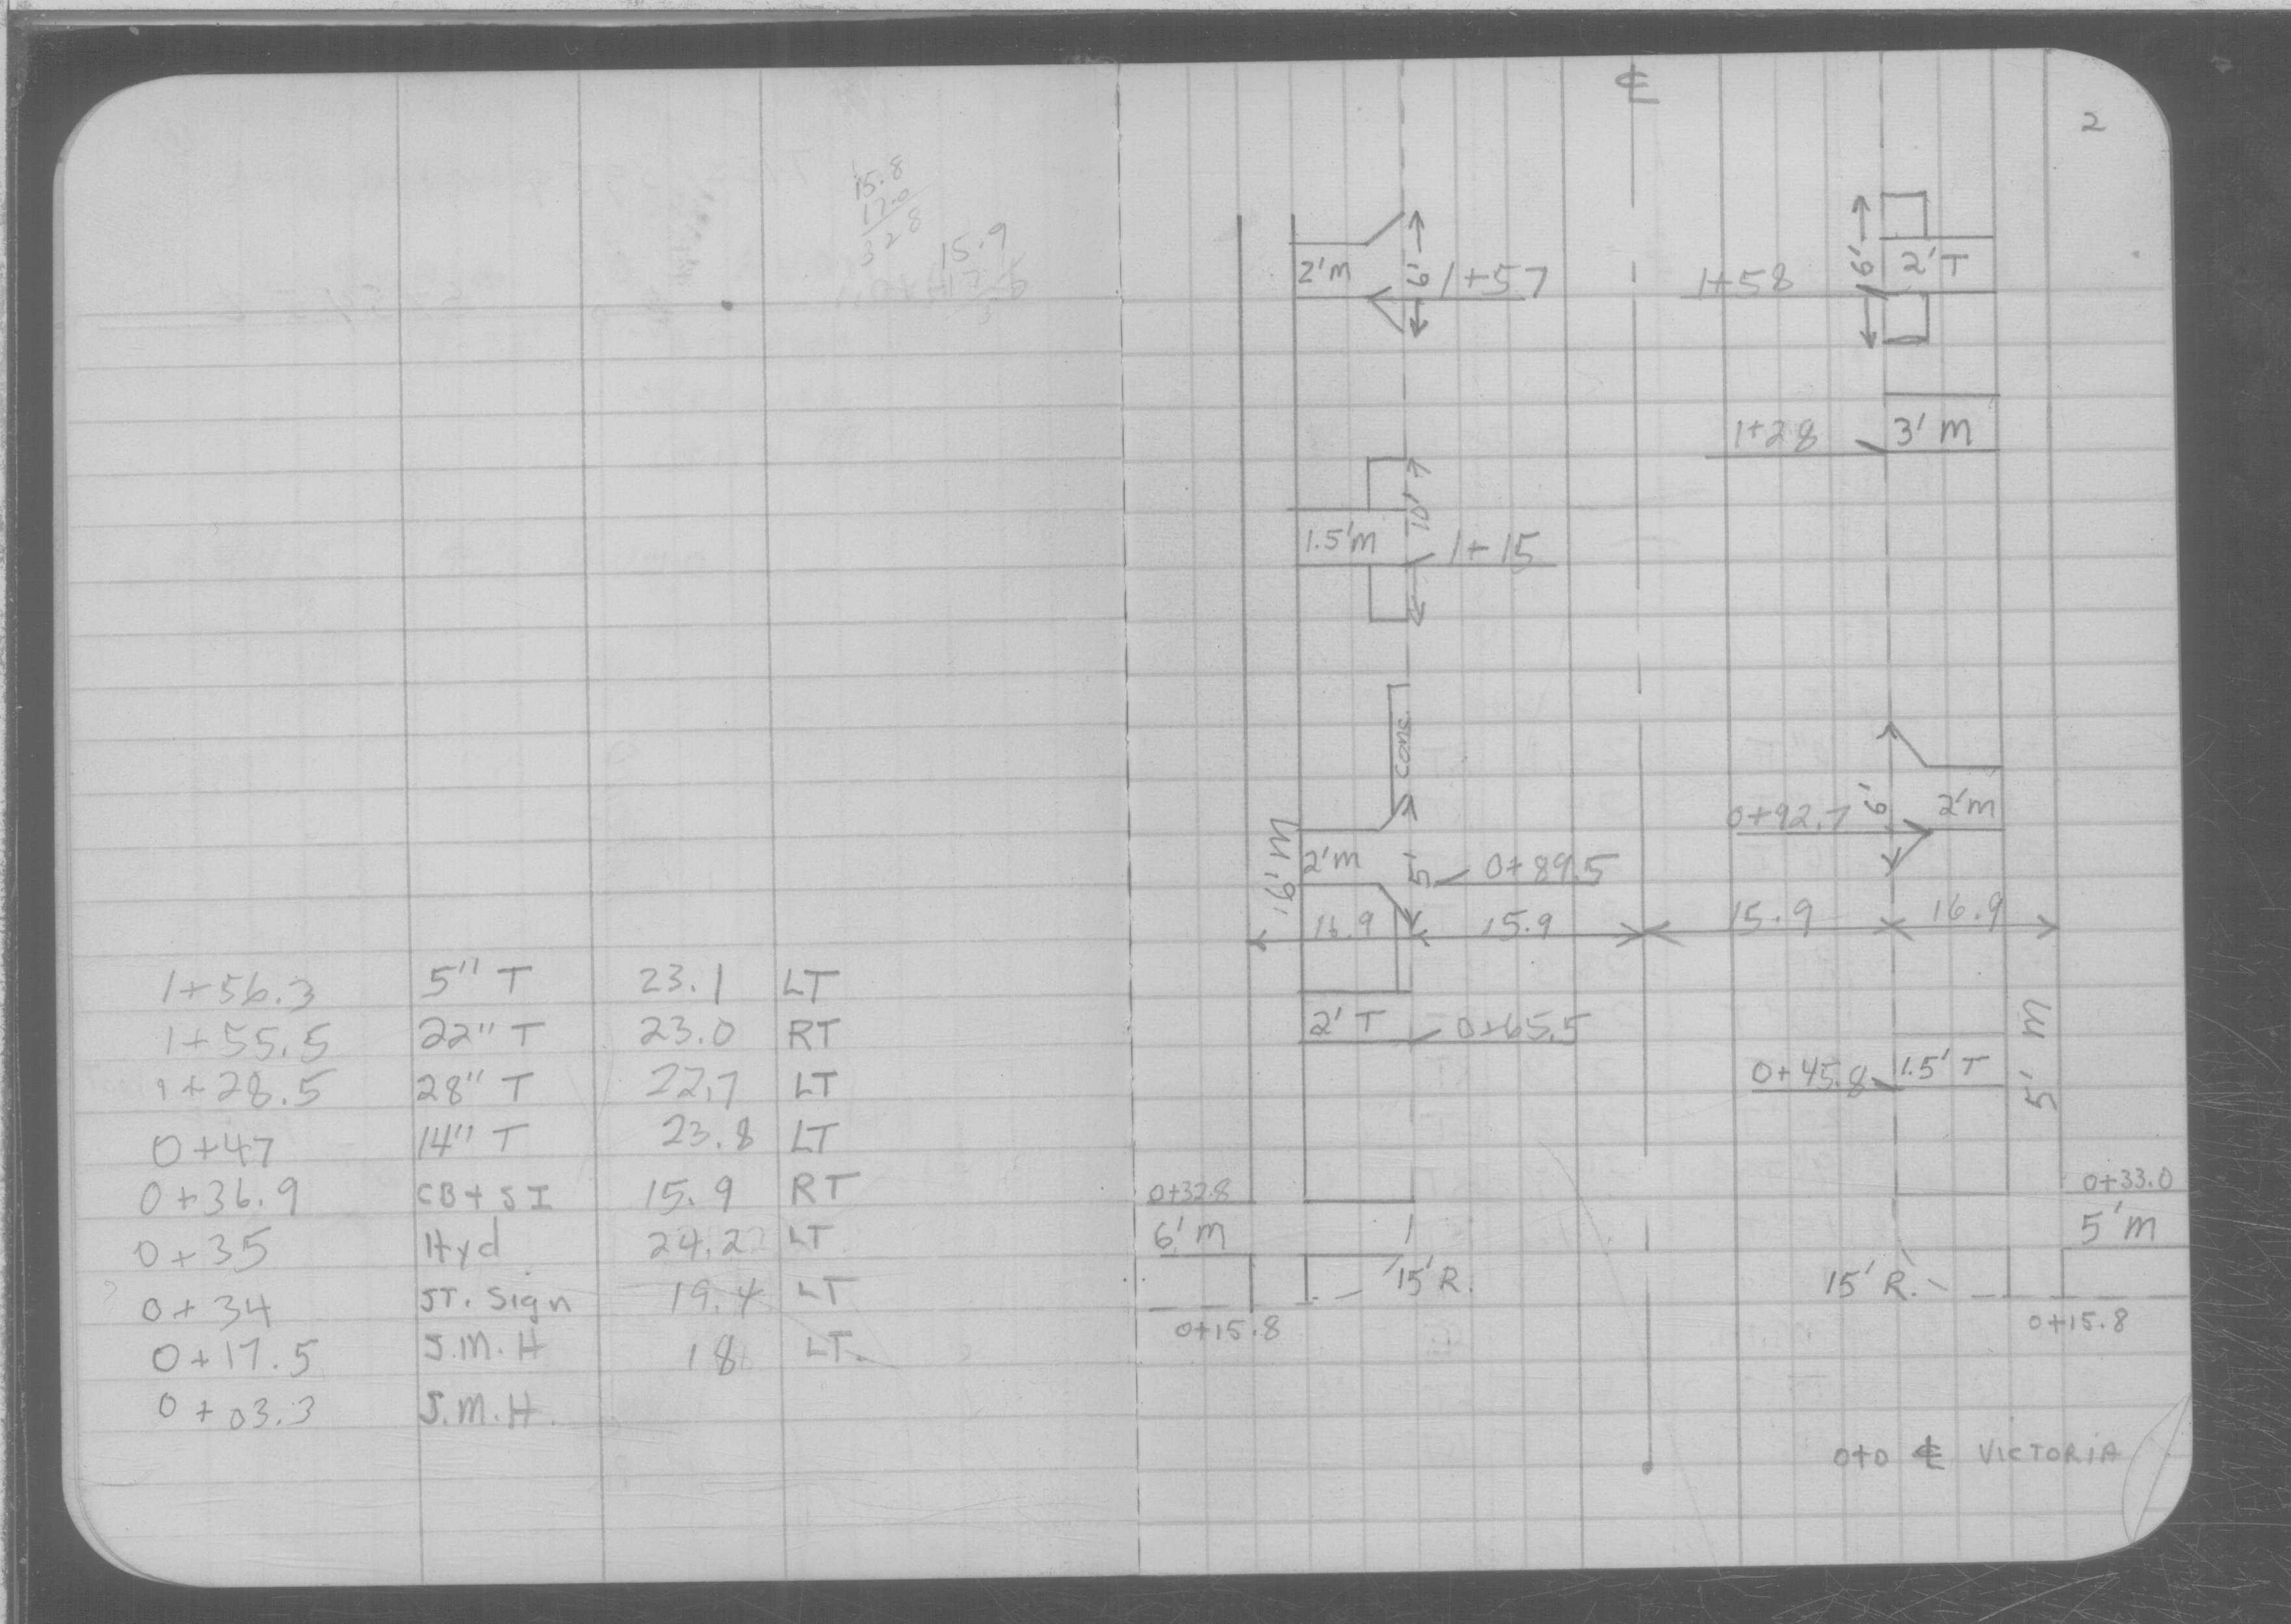 15.8
17.0
32 8
15.9
1+56.3 5" T 23.1 LT
1+55.5 22" T 23.0 RT
1+28.5 28" T 22.7 LT
0+47 14" T 23.8 LT
0+36.9 CB+SI 15.9 RT
0+35 Hyd 24.2 LT
0+34 ST. Sign 19.4 LT
0+17.5 S.M.H 18 LT
0+03.3 S.M.H.
℄
2
2'M 6' 1+57 1+58 6' 2'T
1+28 3'M
10'
1.5'M 1+15
Conc.
0+92.7 6' 2'M
6'M 2'M 5' 0+89.5
16.9 15.9 15.9 16.9
2'T 0+65.5
0+45.8 1.5'T 5'M
0+32.8 0+33.0
6'M 5'M
15'R. 15'R.
0+15.8 0+15.8
0+0 ℄ VICTORIA